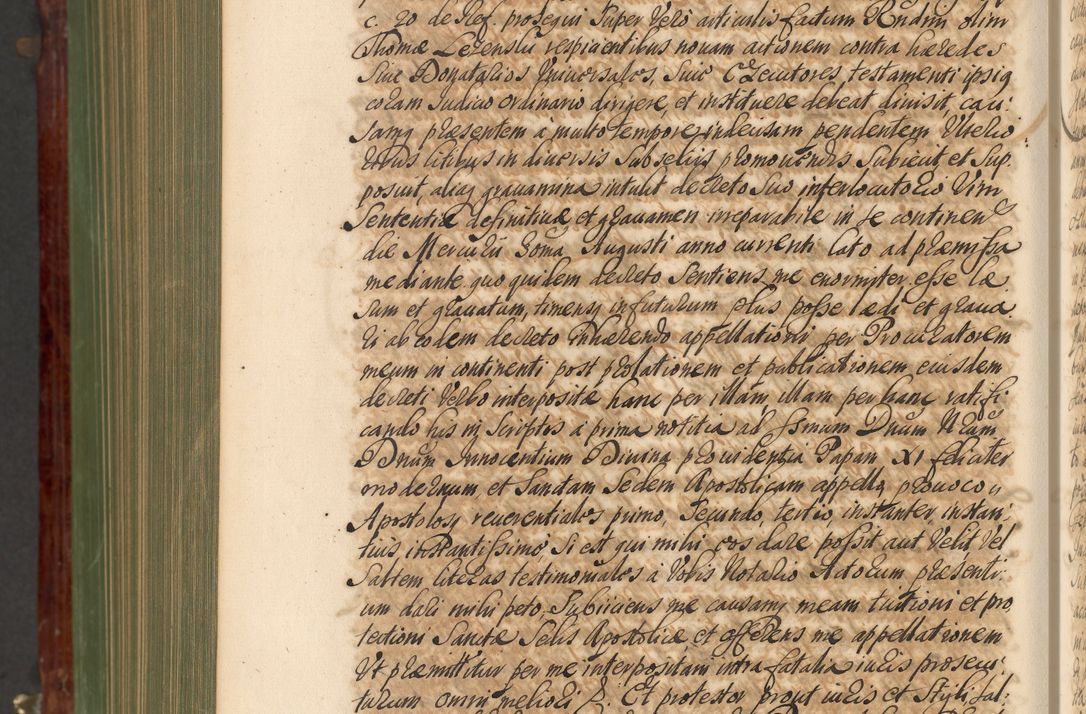 c. 20 de Ref. prosequi super vero articulis factum Rndm olim
Thomæ Lezenski respicientibus novam actionem contra hæredes
sive Donatarios Universales, sive Executores testamenti ipsig
coram Iudicio ordinario dirigere, et instituere debeat divisit, cau:
samq præsentem a multo tempore indecisam pendentem
litibus in diversis Subselijs promovendis Subiecit et Sup.
posuit, aliaq gravamina intulit decreto suo interlocutorio Vim
Sententiæ definitivæ et gravamen irreparabile in se continen
die Mercurii Augusti anno currenti lato ad præmissa
mediante quo quidem decreto Sentiens me enormiter esse læ
sum et gravatum, timensq in futurum plus posse lædi et grava
ri ab eodem decreto inhærendo appellationi per Procuratorem
meum in continenti post prolationem et publicationem eiusdem
decreti Verbo interpositæ hanc per illam illam per hanc ratifi
cando his in Scriptis a prima notitia ad Ssmum Dnum Nrum
Dnum Innocentium Divina providentia Papam XI feliciter
modernum et Sanctam Sedem Apostolicam appello provoco
Apostolosq reverentiales primo, Secundo, tertio, instanter, instan
tius instantissime si est qui mihi eos dare possit aut Velit Vel
Saltem literas testimoniales a Vobis Notario Actorum præsenti:
um dari mihi peto, Subiiciens me causamq meam tuitioni et pro
tectioni Sanctæ Sedis Apostolicæ et offerens me appellationem
Ut præmittitur per me interpositam intra fatalia iuris prosecu
turum omni meliori Et protestor prout iuris et Styli sal: